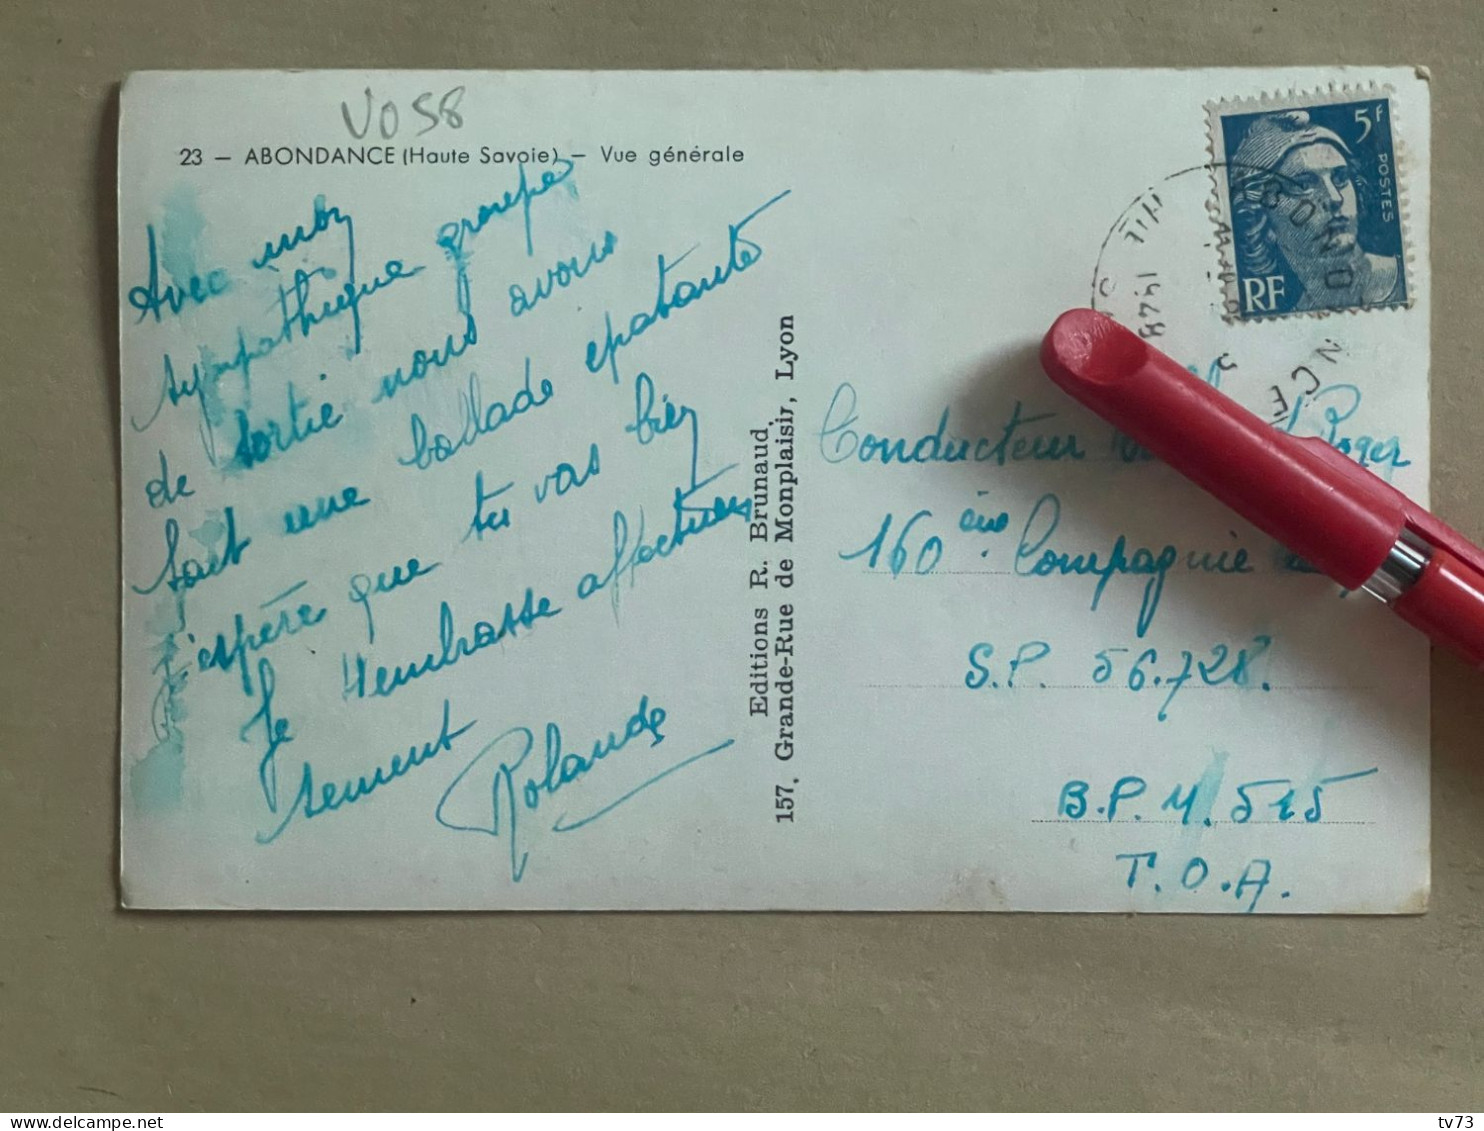 V058
23 — ABONDANCE (Haute Savoie) — Vue générale
Avec mon
sympathique groupe
de sortie nous avons
fait une ballade épatante
J'espère que tu vas bien
Je t'embrasse affectueu
sement
Rolande
Editions R. Brunaud
157, Grande-Rue de Monplaisir, Lyon
5F
POSTES
RF
Conducteur Roger
160ème Compagnie
S.P. 56.728.
B.P.M. 515
T.O.A.
Delcampe.net
tv73